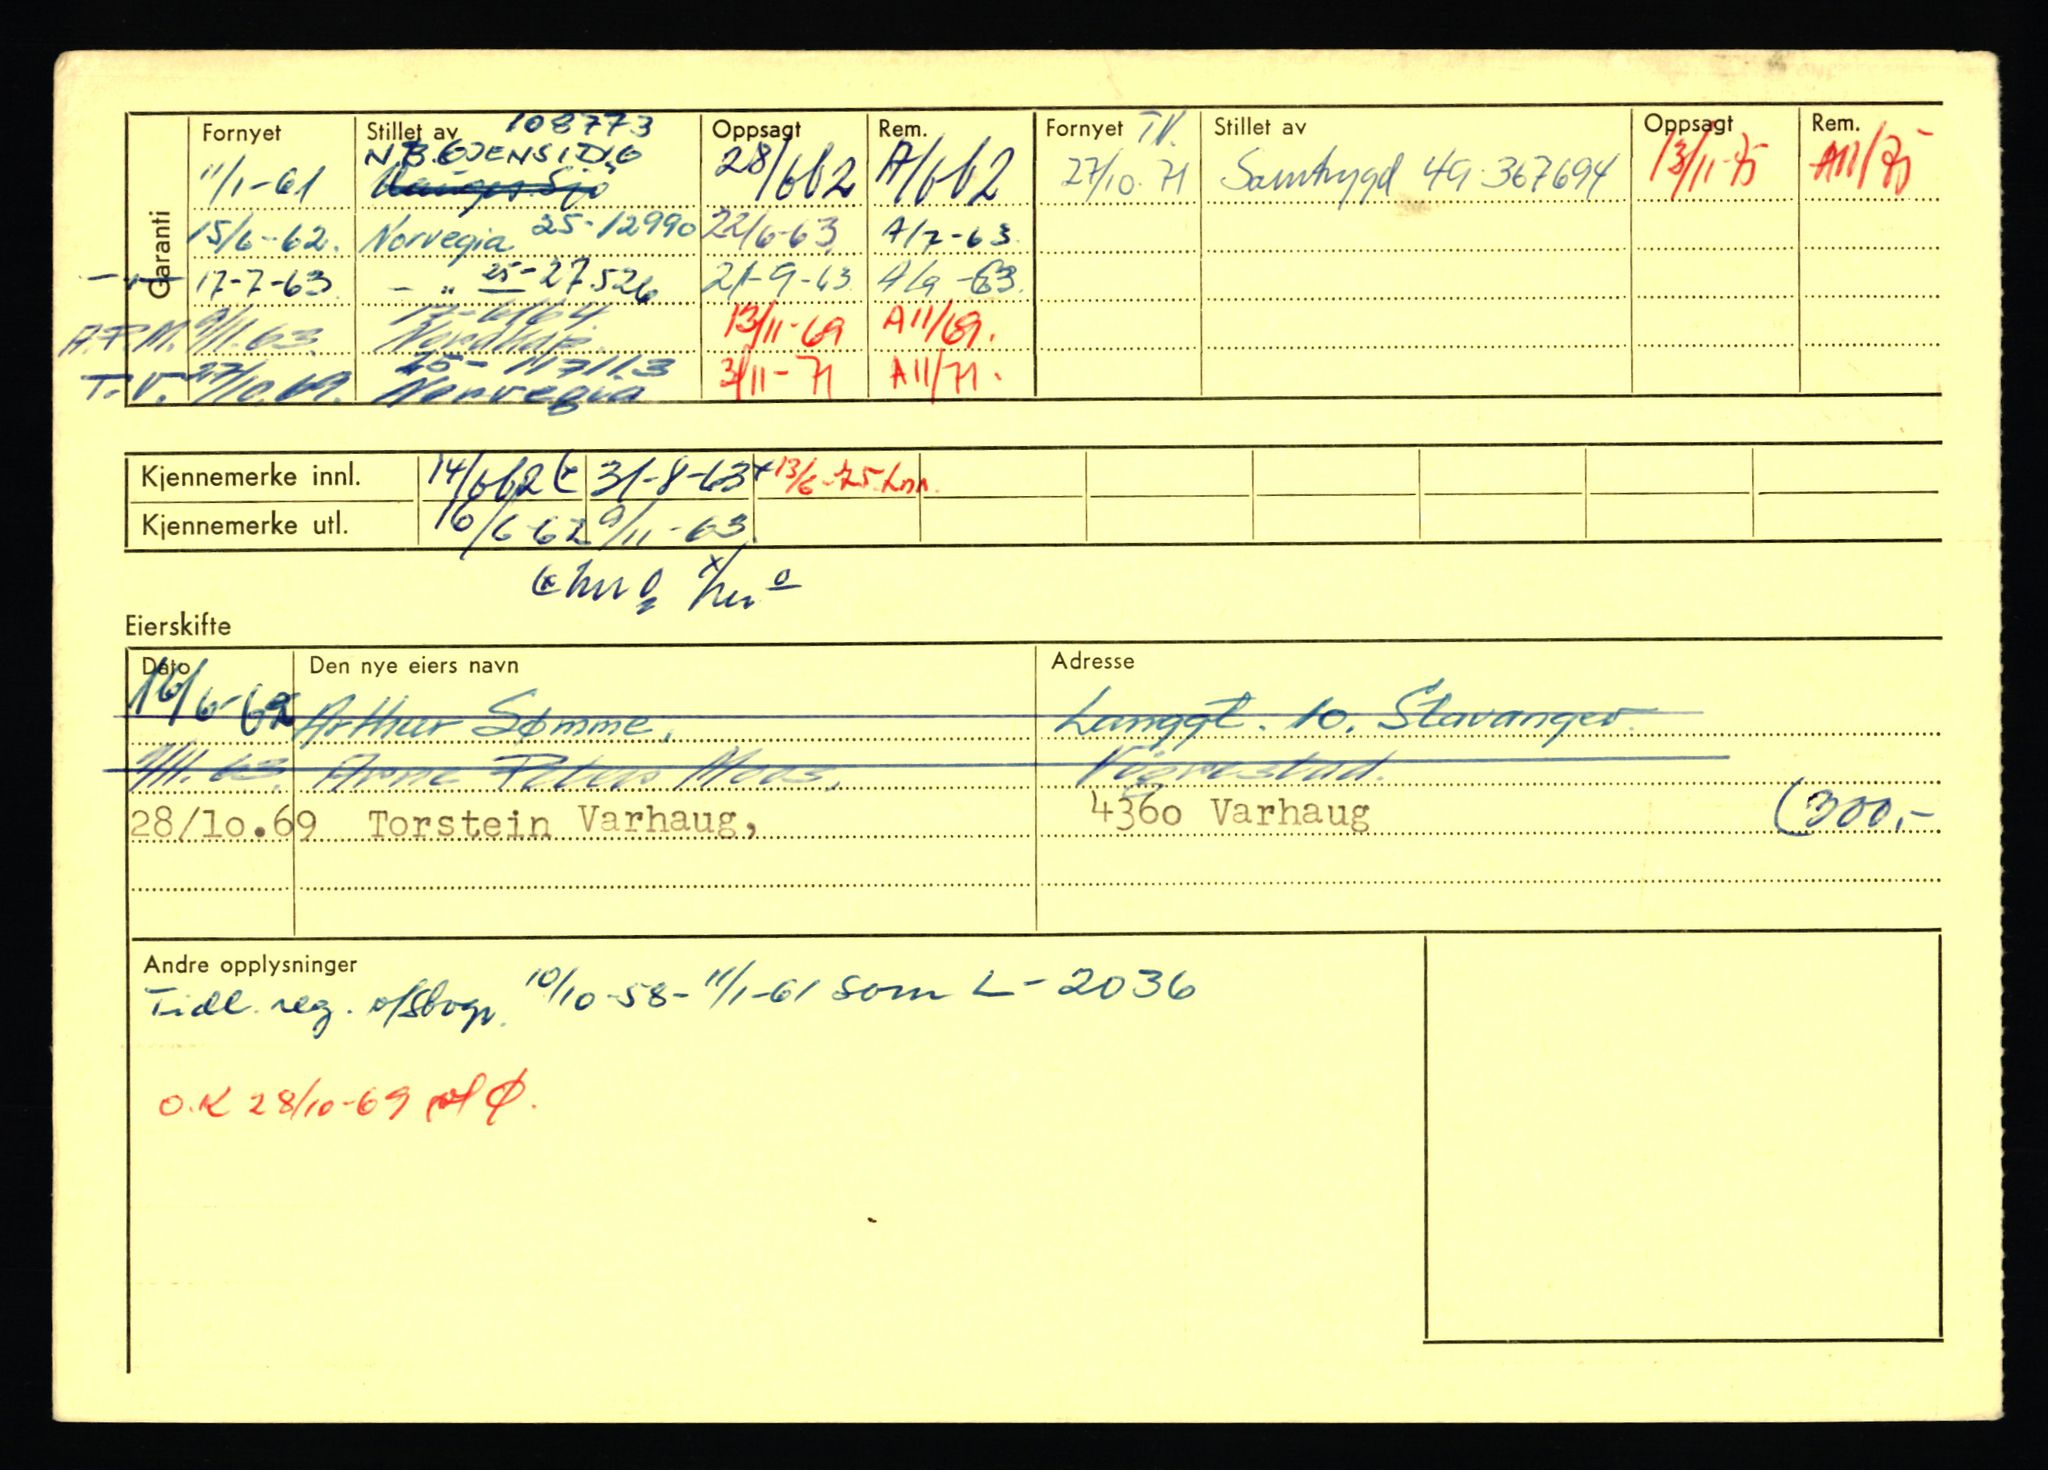 Garanti
Fornyet Stillet av 108773 Oppsagt Rem. Fornyet T.V. Stillet av Oppsagt Rem.
N.B. GJENSIDIG
11/1-61 28/6 62 A/6 62 27/10.71 Samtrygd 49.367694 13/11-75 A11/75
15/6-62. Norvegia 25-12990 22/6-63 A/7-63
17-7-63 - " - 25-27526 21-9-63 A/9-63.
A.P.M. 9/11.63. 13/11-69 A11/69.
25-117113
T.V. 27/10.69. Norvegia 3/11-71 A11/71.
Kjennemerke innl. 14/6 62 31-8-63 x 13/6-75
Kjennemerke utl. 16/6-62 9/11-63
Eierskifte
Dato Den nye eiers navn Adresse
16/6-62 Arthur Sømme, Langgt. 10. Stavanger
9/11.63. Arne Vigrestad.
28/10.69 Torstein Varhaug, 4360 Varhaug (300,-
Andre opplysninger
Tidl. reg. 10/10-58-11/1-61 som L-2036
O.K 28/10-69